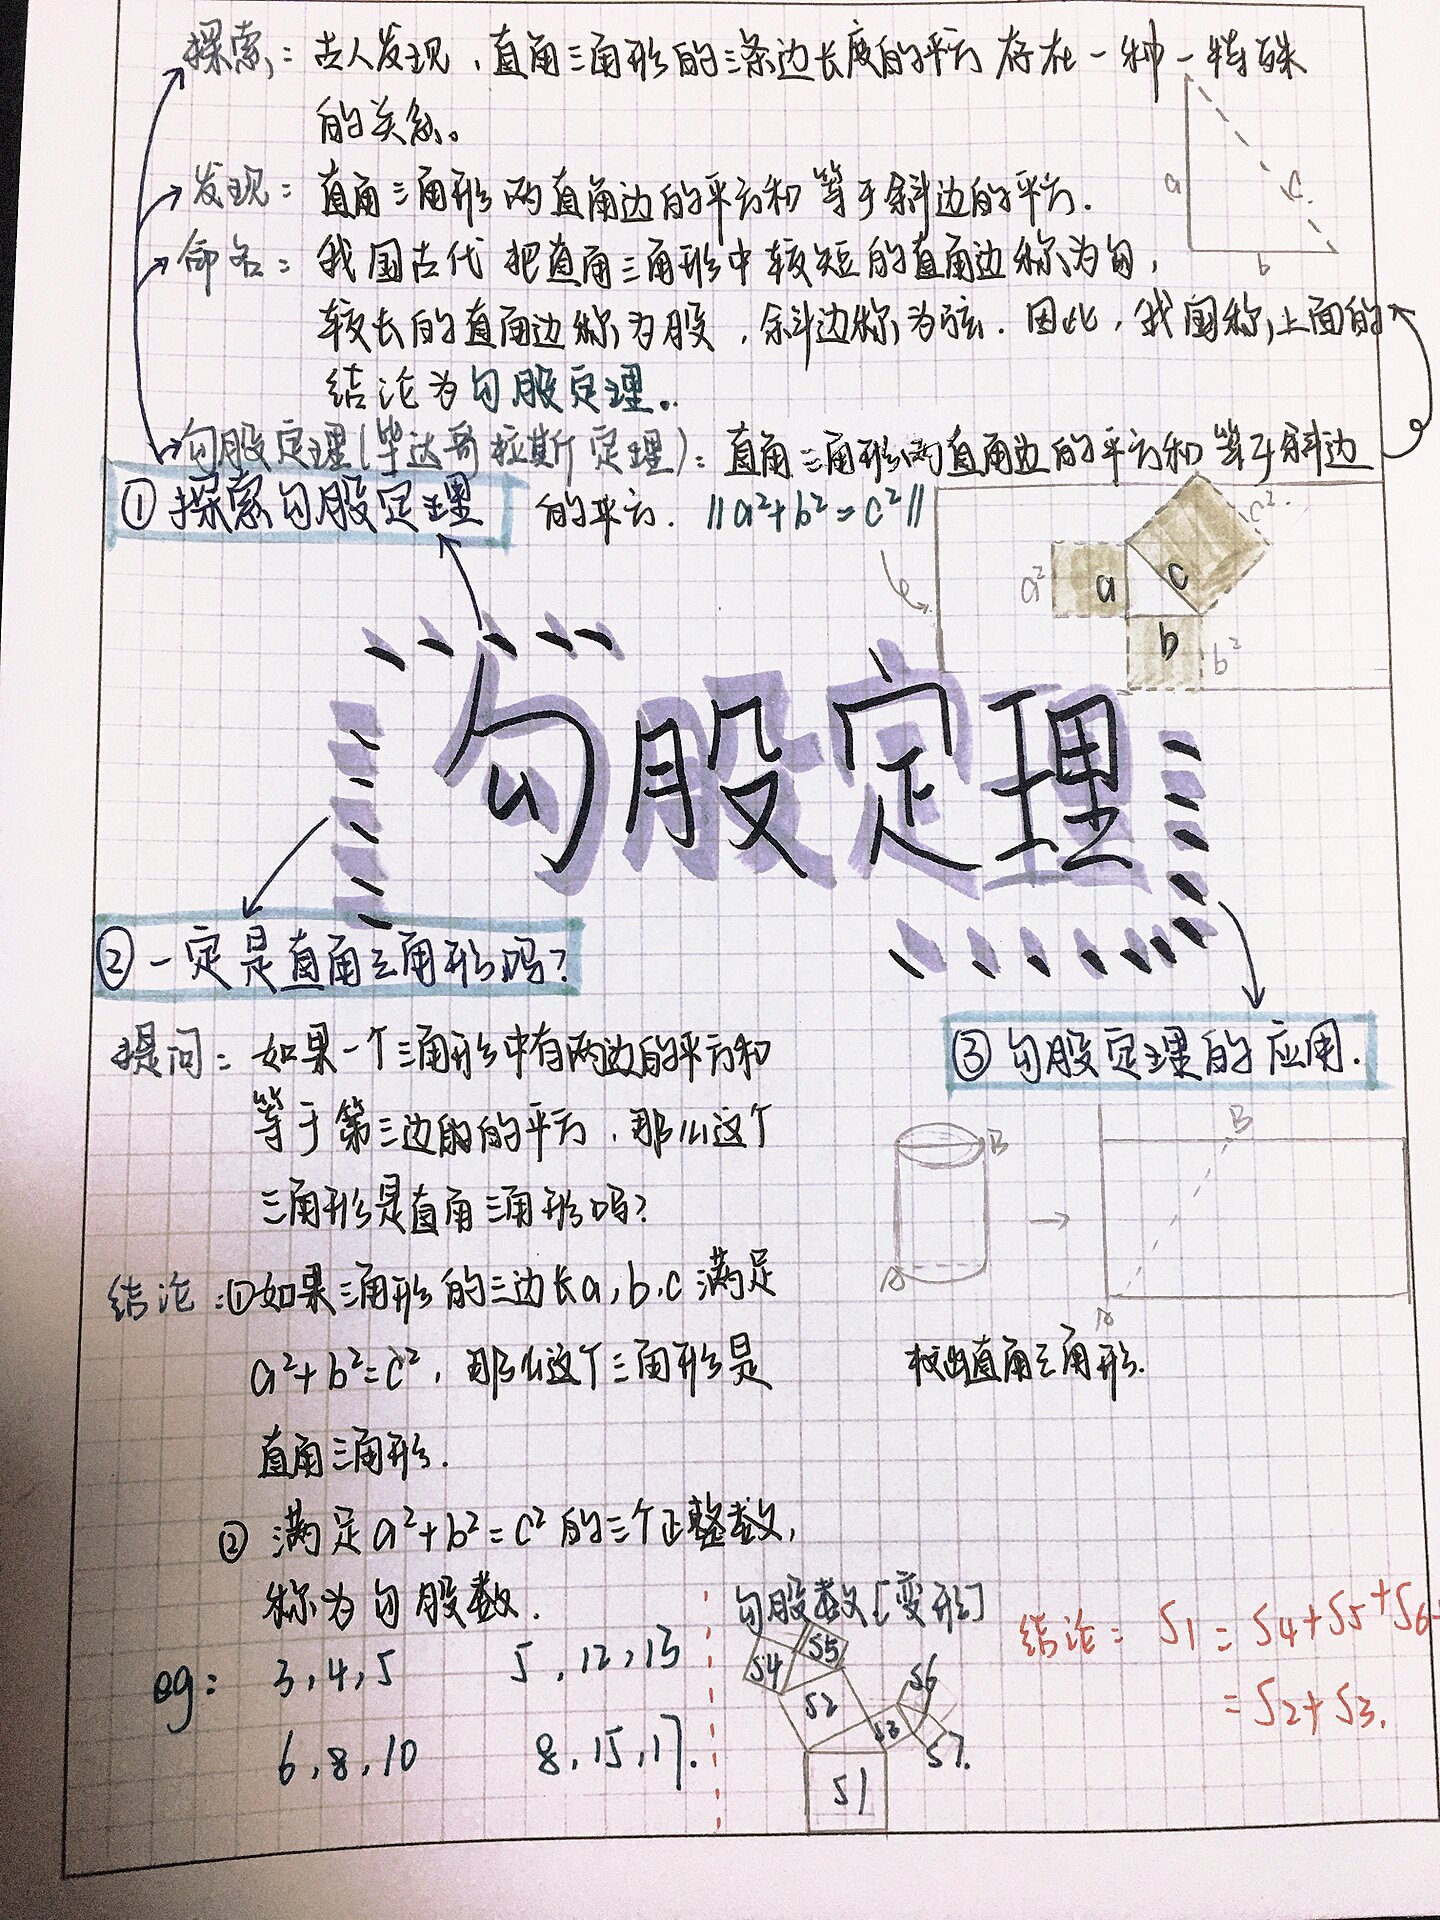 探索：古人发现，直角三角形的三条边长度的平方存在一种一特殊
的关系。
a
c
b
发现：直角三角形两直角边的平方和等于斜边的平方.
命名：我国古代把直角三角形中较短的直角边称为勾,
较长的直角边称为股，斜边称为弦.因此，我国称上面的
结论为勾股定理。
勾股定理(毕达哥拉斯定理)：直角三角形两直角边的平方和等于斜边
的平方. ‖a²+b²=c²‖
①探索勾股定理
a²
a
c
c²
b
b²
勾股定理
②一定是直角三角形吗？
提问：如果一个三角形中有两边的平方和
等于第三边的平方，那么这个
三角形是直角三角形吗？
结论：①如果三角形的三边长a,b,c满足
a²+b²=c²，那么这个三角形是
直角三角形.
②满足a²+b²=c²的三个正整数，
称为勾股数.
eg：3,4,5 5,12,13
6,8,10 8,15,17.
③勾股定理的应用.
B
A
B
A
构出直角三角形.
勾股数[变形]
S4
S5
S2
S6
S3
S7.
S1
结论：S1=S4+S5+S6+
=S2+S3.